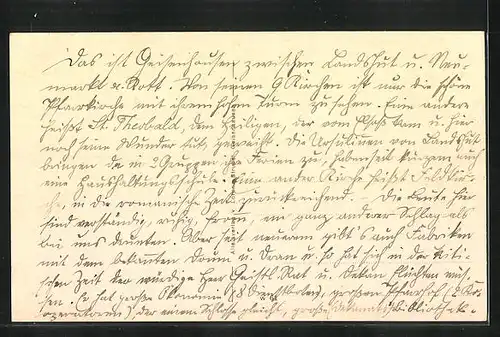 Das ist Geisenhausen zwischen Landshut u. Neu-
markt a. Rott. Von seinen 9 Kirchen ist nur die schöne
Pfarrkirche mit ihrem hohen Turm zu sehen. Eine andere
heißt St. Theobald, dem Heiligen, der vom Elsaß kam u. hier
noch seine Wunder tut, geweiht. Die Ursulinen von Landshut
bringen da in 2 Gruppen ihre Ferien zu, haben seit kurzem auch
eine Haushaltungsschule. Eine andere Kirche heißt Feldkir-
che, in die romanische Zeit zurückreichend. - Die Leute hier
sind verständig, ruhig, fromm, ein ganz anderer Schlag als
bei uns drunten. Aber seit neuerem gibt's auch Fabriken
mit dem bekannten Drum u. Dran u. so hat sich in der
Zeit der würdige Herr Geistl. Rat u. Dekan flüchten müs-
sen. (Er hat große Ökonomie & 8 Dienstboten, großen Pfarrhof (2 Ko-
operatoren) der einem Schlosse gleicht, große Bibliothek.